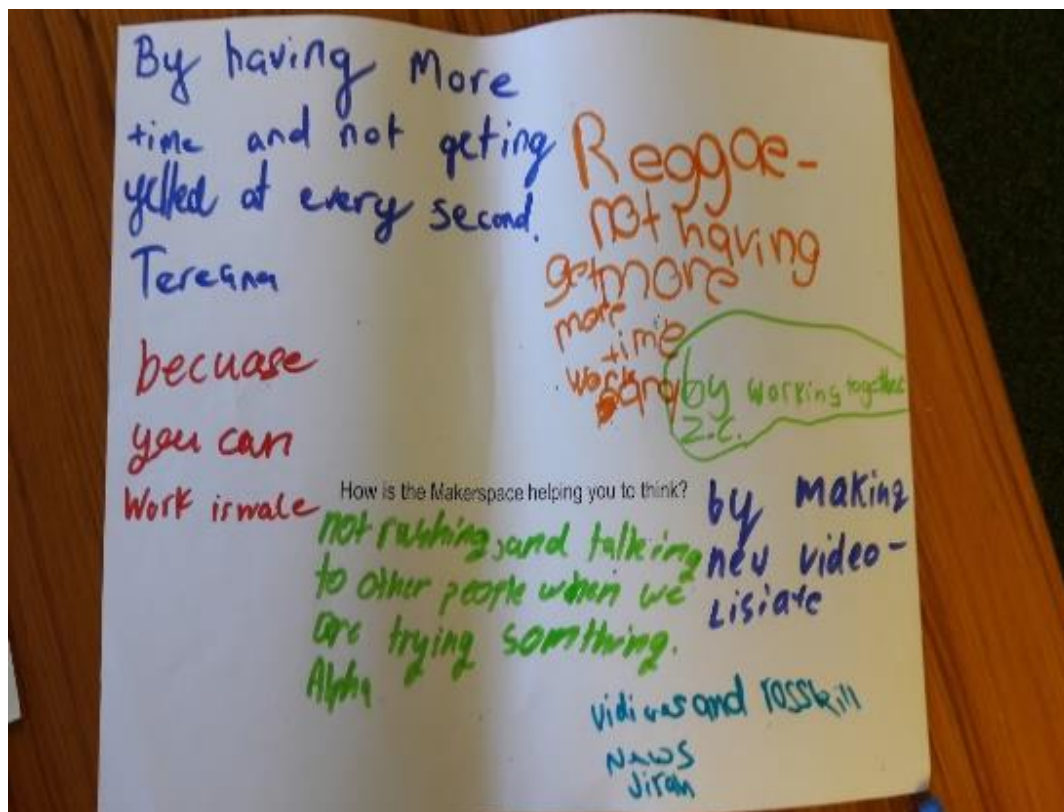 By having More
time and not geting
yelled at every second.
Tereana
becuase
you can
Work
Reggae-
not having
get more
more
time
work
by working together
Z.C.
How is the Makerspace helping you to think?
not rushing, and talking
to other people when we
are trying somthing.
Alpha
by making
new video-
Lisiate
and rosskill
News
Jiran